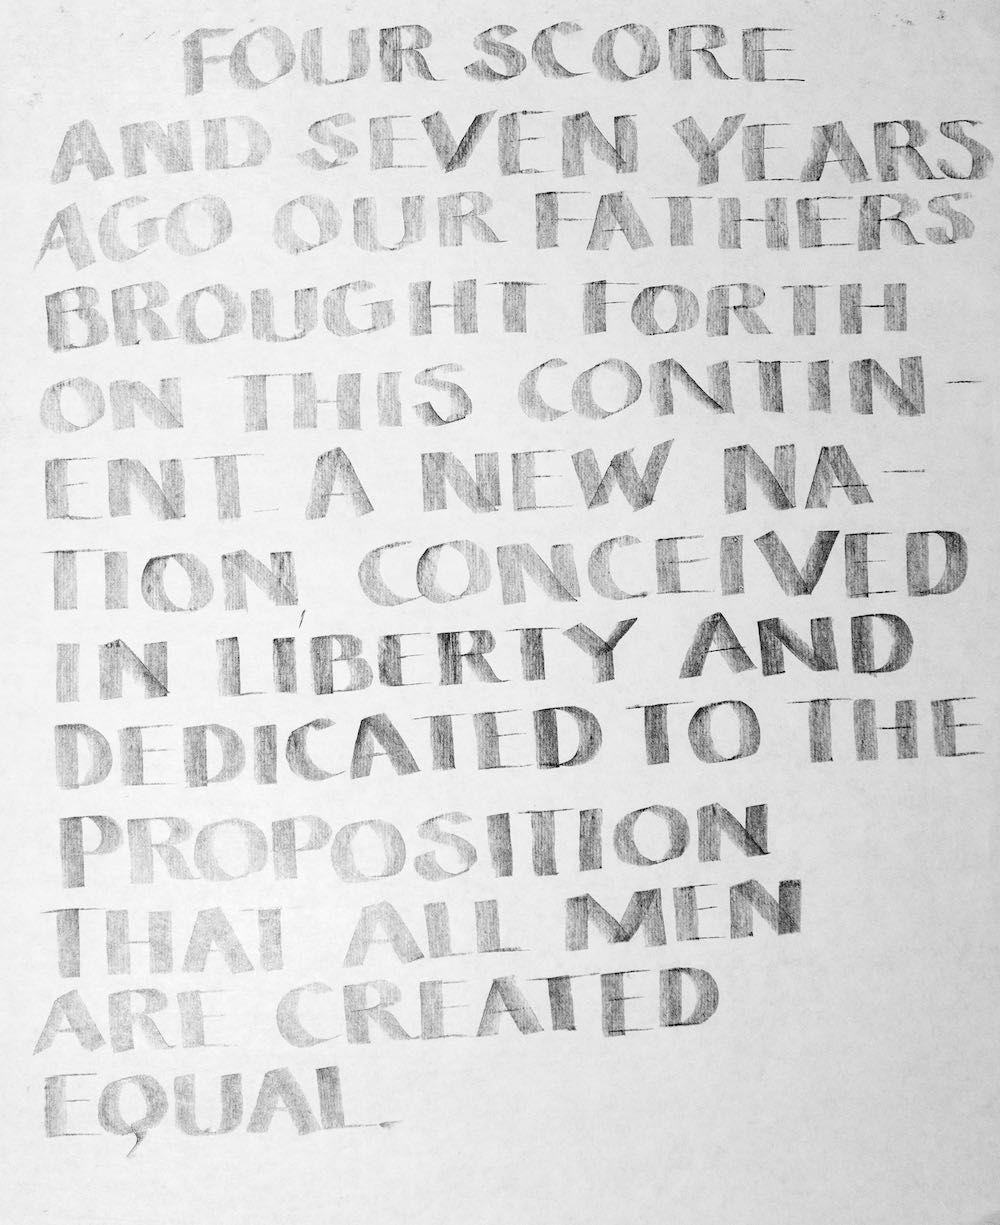 FOUR SCORE
AND SEVEN YEARS
AGO OUR FATHERS
BROUGHT FORTH
ON THIS CONTIN-
ENT A NEW NA-
TION, CONCEIVED
IN LIBERTY AND
DEDICATED TO THE
PROPOSITION
THAT ALL MEN
ARE CREATED
EQUAL.